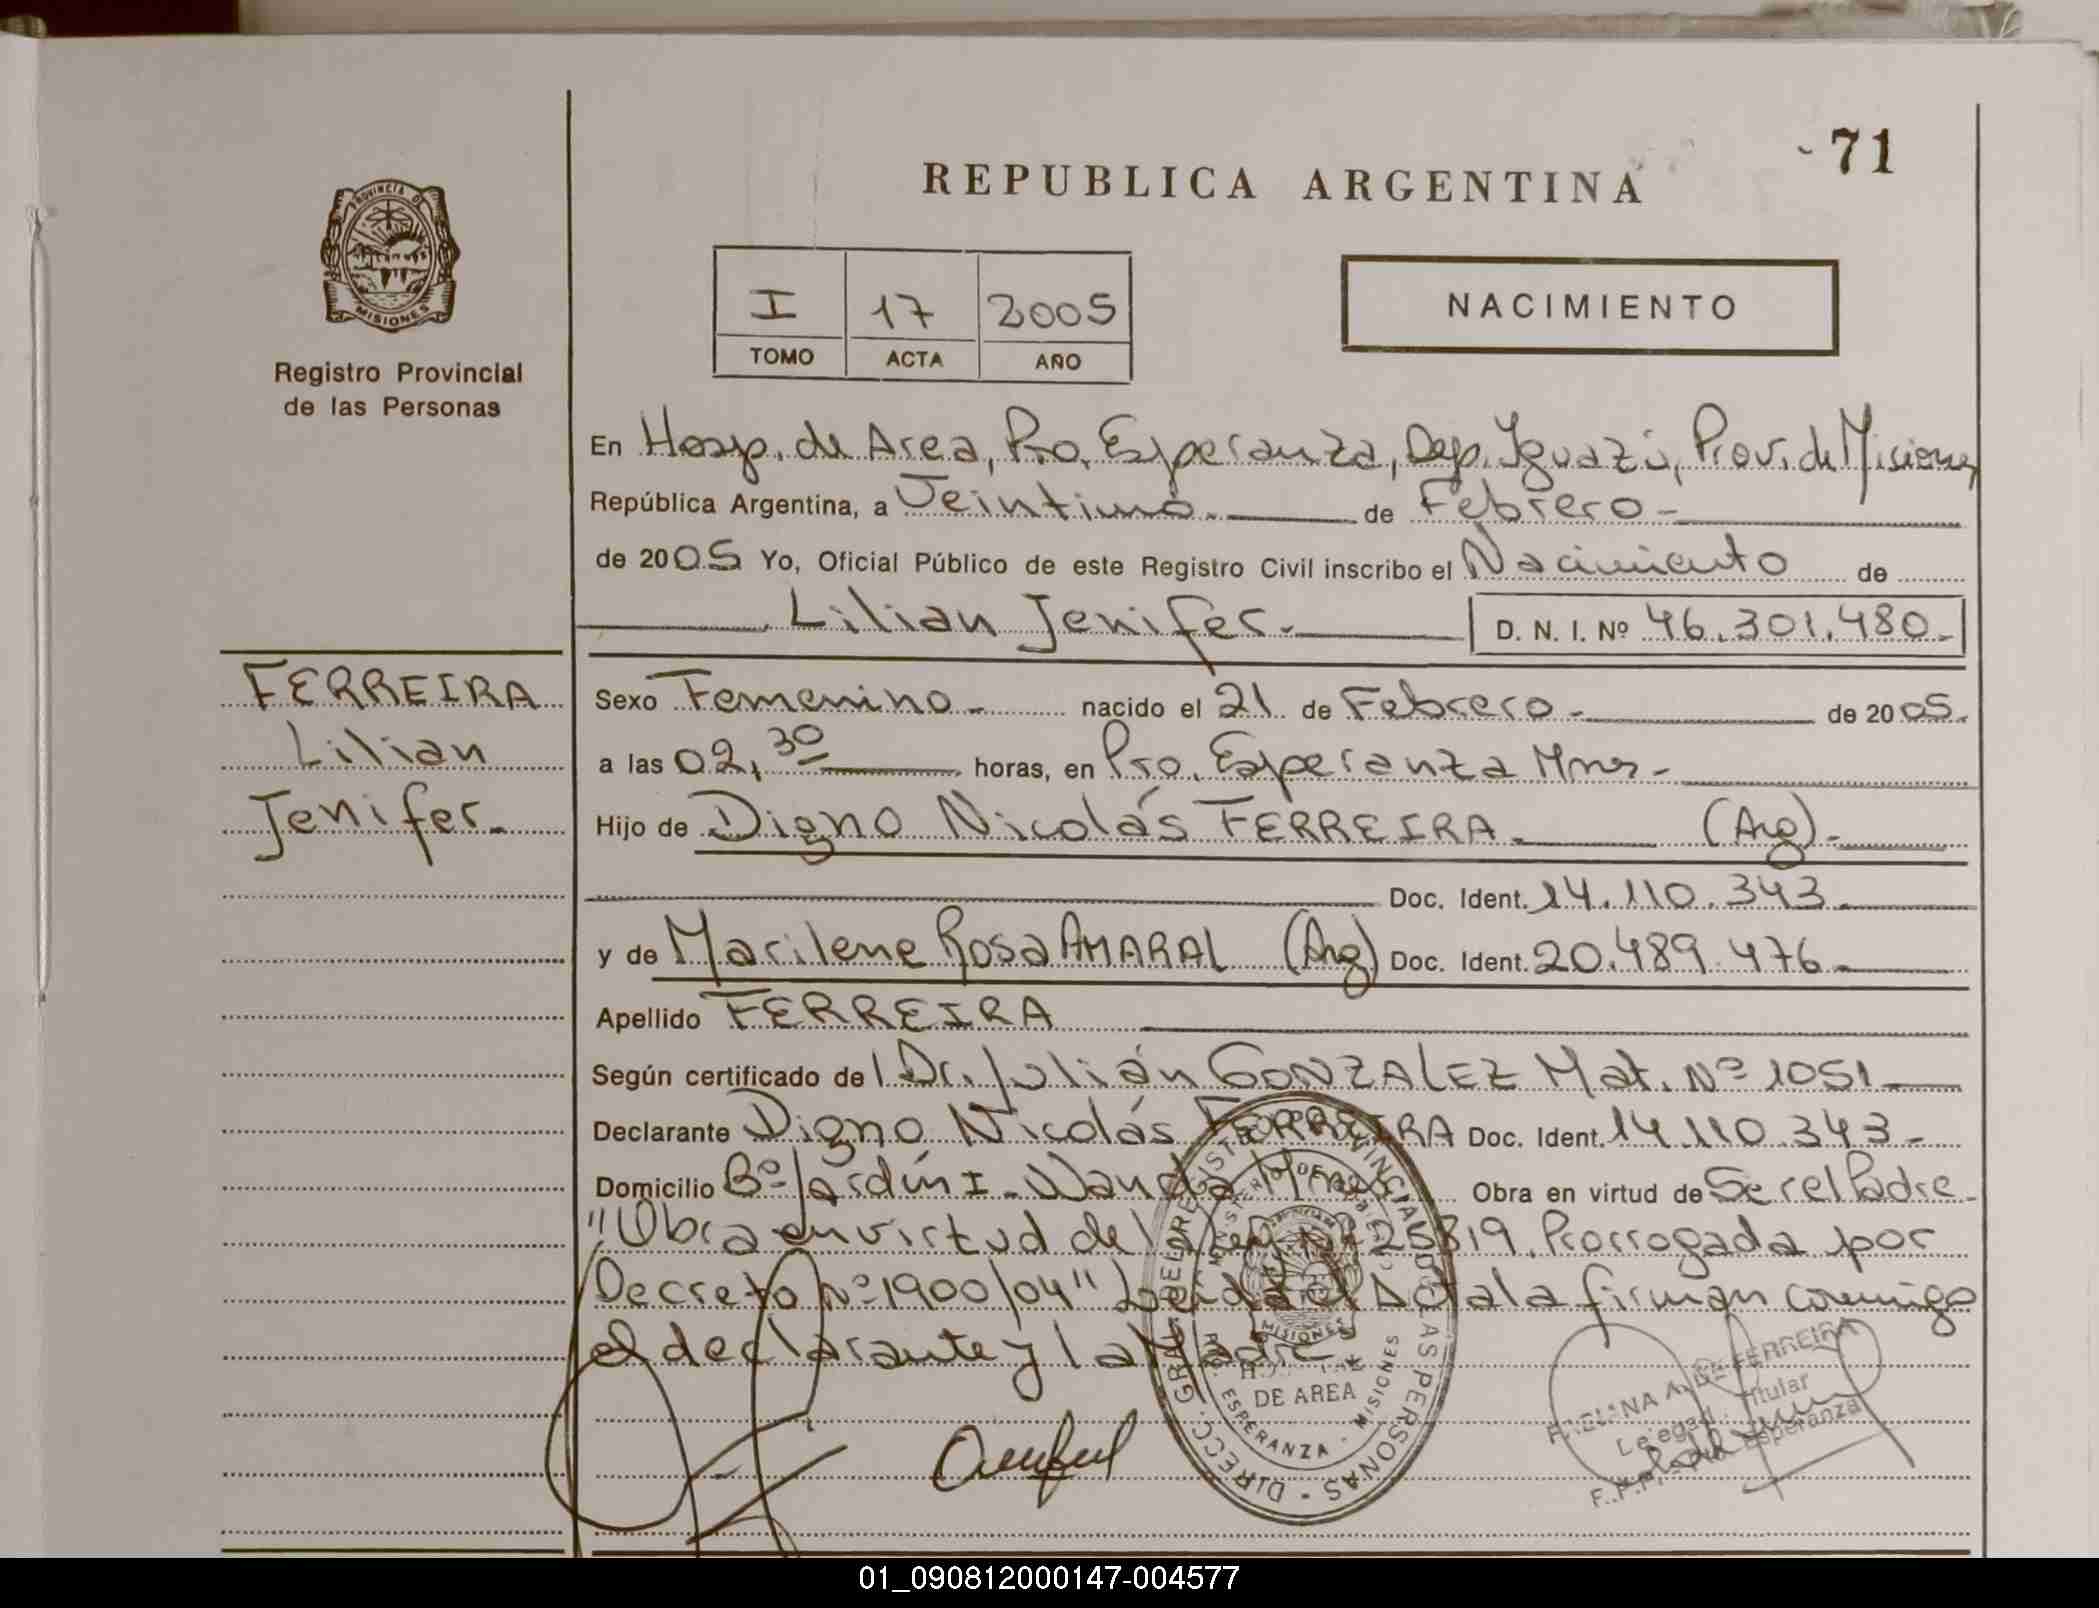 71
REPUBLICA ARGENTINA
PROVINCIA DE
MISIONES
Registro Provincial
de las Personas
I 17 2005
TOMO ACTA AÑO
NACIMIENTO
En Hosp. de Area, Pto. Esperanza, Dep. Iguazú, Prov. de Misiones
República Argentina, a Veintiuno.- de Febrero-
de 2005 Yo, Oficial Público de este Registro Civil inscribo el Nacimiento de
Lilian Jenifer.- D. N. I. Nº 46.301.480.-
FERREIRA
Lilian
Jenifer.-
Sexo Femenino.- nacido el 21 de Febrero.- de 2005.-
a las 02,30 horas, en Pto. Esperanza Mnes-
Hijo de Digno Nicolás FERREIRA.- (Arg).-
Doc. Ident. 14.110.343.-
y de Marilene Rosa AMARAL (Arg) Doc. Ident. 20.489.476.-
Apellido FERREIRA
Según certificado de l Dr. Julián GONZALEZ Mat. Nº 1051.-
Declarante Digno Nicolás FERREIRA Doc. Ident. 14.110.343.-
Domicilio Bº Jardín I - Wanda Mnes. Obra en virtud de Ser el Padre.-
"Obra en virtud de la Ley Nº 25819. Prorrogada por
Decreto Nº 1900/04" Leida el Acta la firman conmigo
el declarante y la Madre
DIRECC. GRAL. DEL REGISTRO PROVINCIAL DE LAS PERSONAS
MISIONES
DE AREA
ESPERANZA - MISIONES
FERREIRA
Titular
Esperanza
01_090812000147-004577